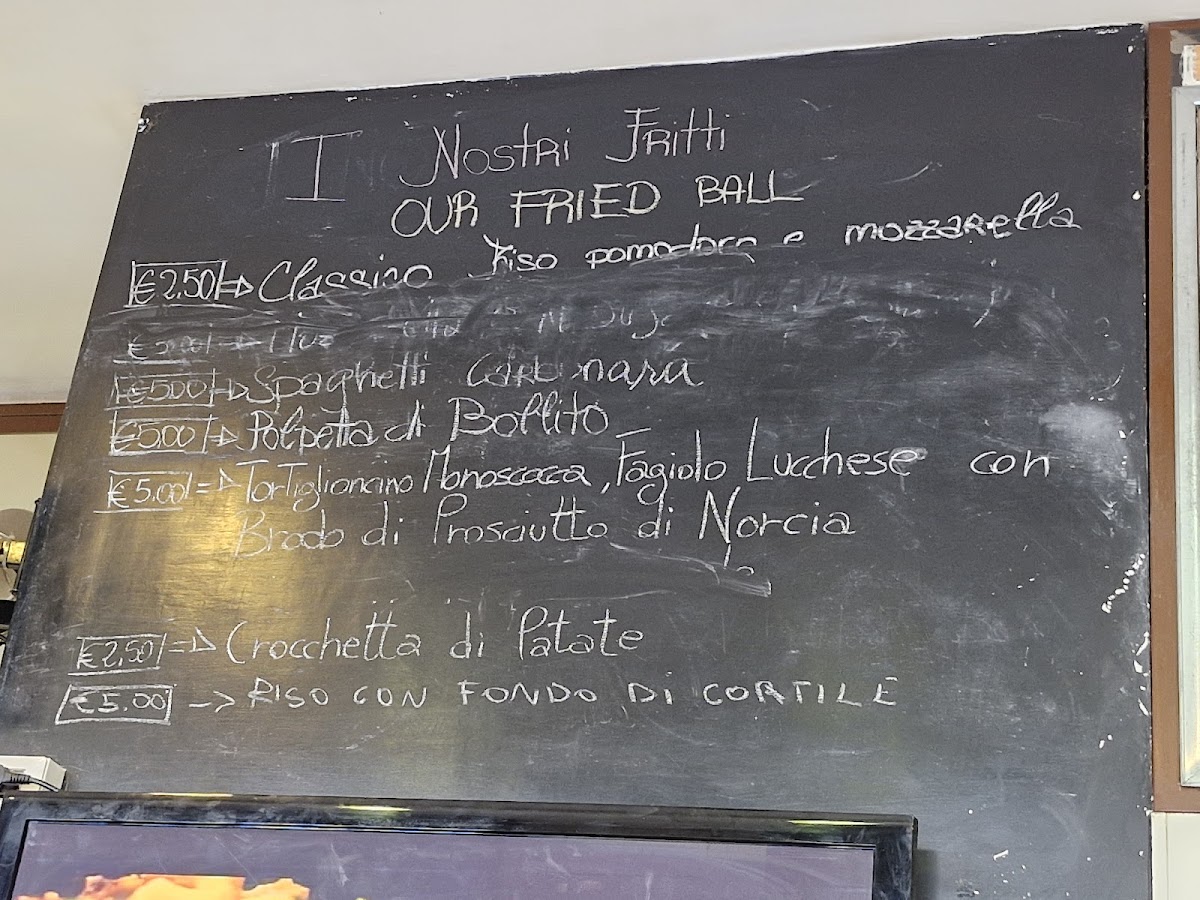 I Nostri Fritti
OUR FRIED BALL
€2.50 Classico Riso pomodoro e mozzarella
€5.00 Spaghetti Carbonara
€5.00 Polpetta di Bollito
€5.00 Tortiglioncino Monococca, Fagiolo Lucchese con
Brodo di Prosciutto di Norcia
€2,50 Crocchetta di Patate
€5.00 RISO CON FONDO DI CORTILE